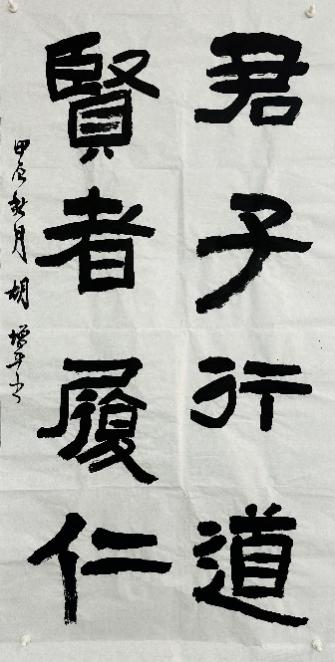 君子行道
賢者履仁
甲辰秋月胡增平书